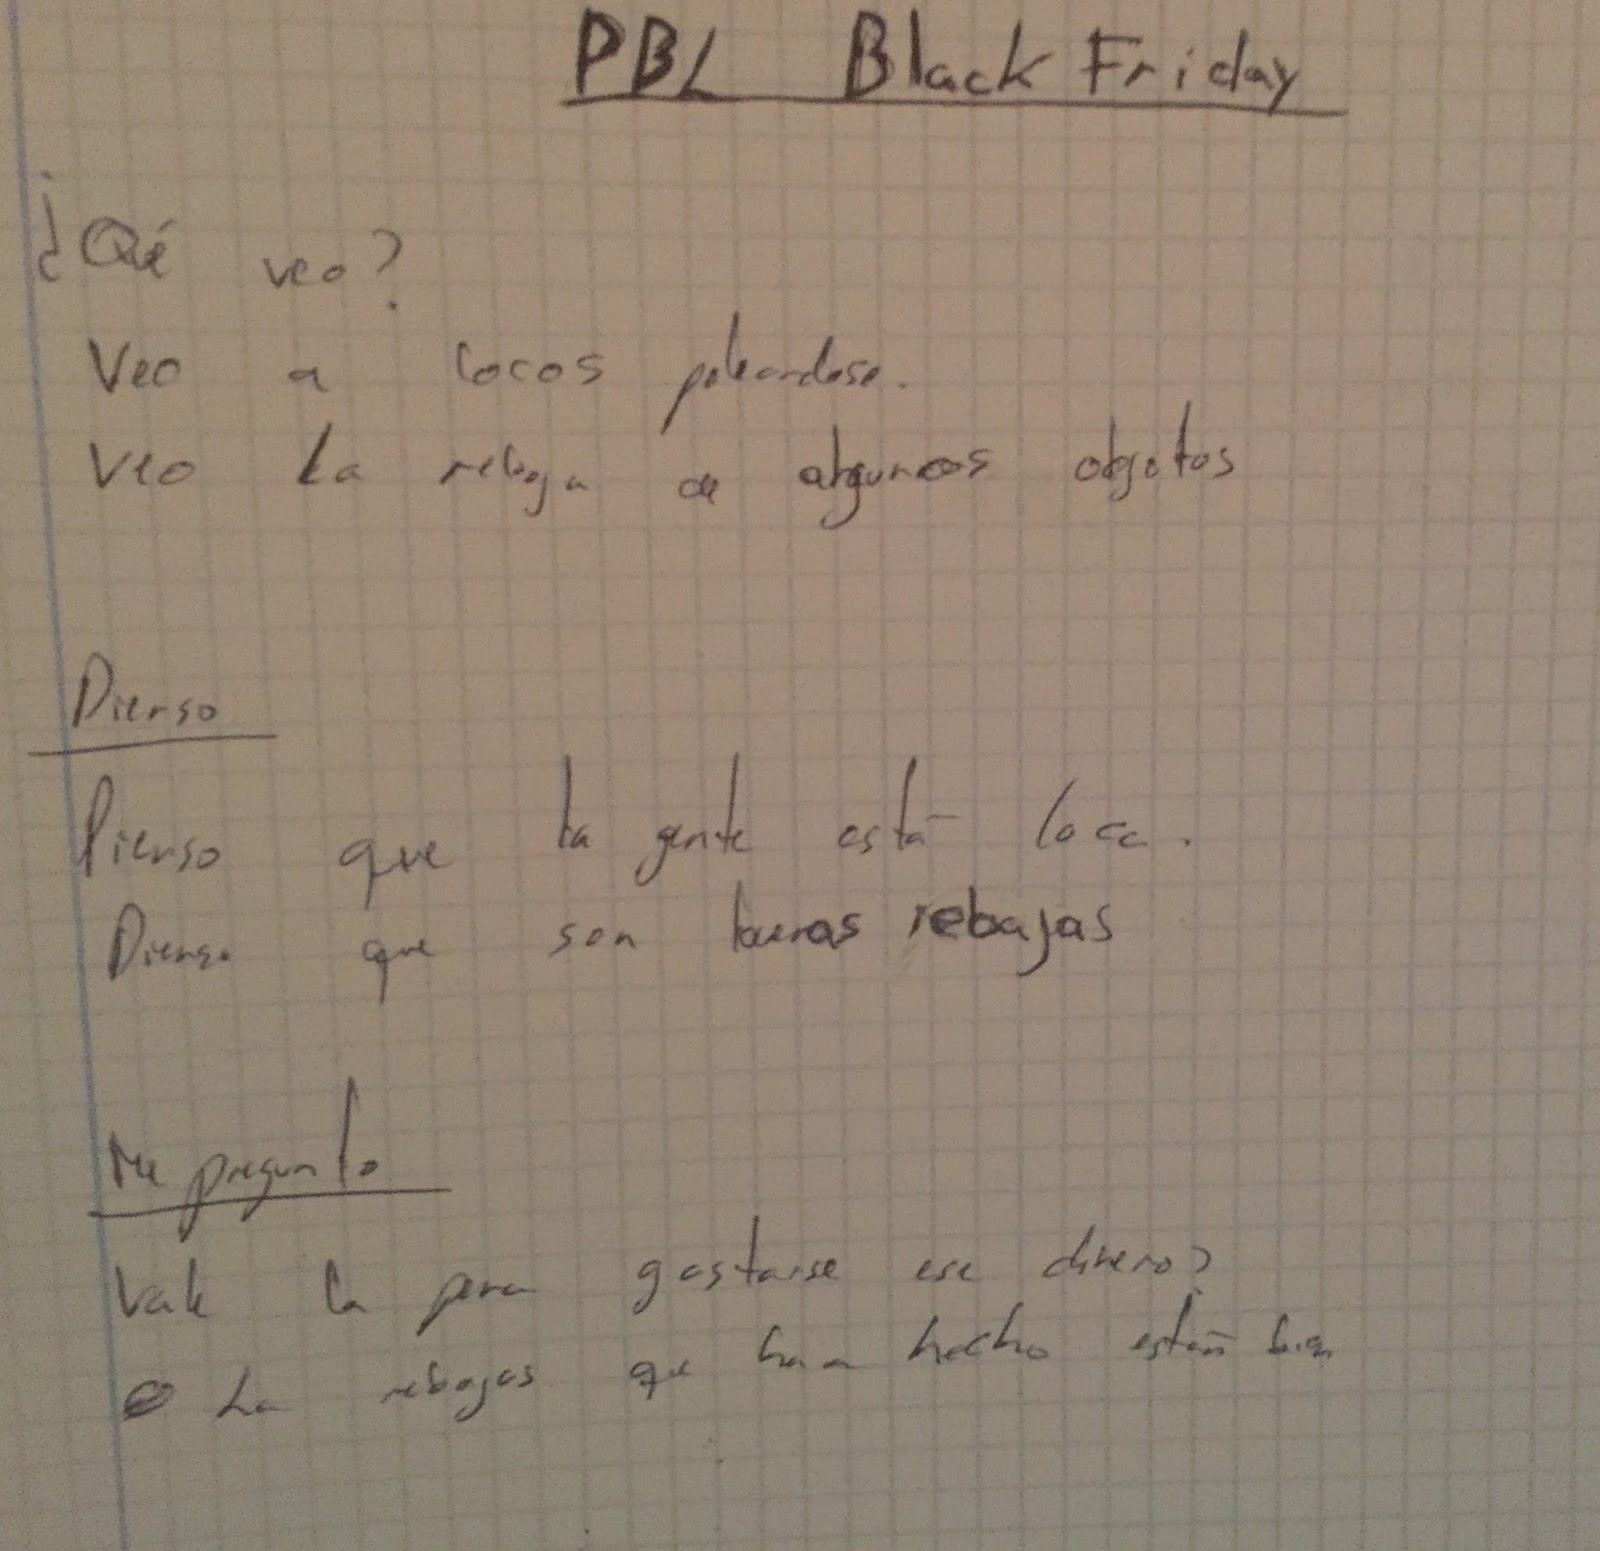 PBL Black Friday
¿Qué veo?
Veo a locos peleandose.
Veo La rebaja de algunos objetos
Pienso
Pienso que la gente está loca.
Pienso que son buenas rebajas
Me pregunto
Vale la pena gastarse ese dinero?
La rebajas que han hecho están bien